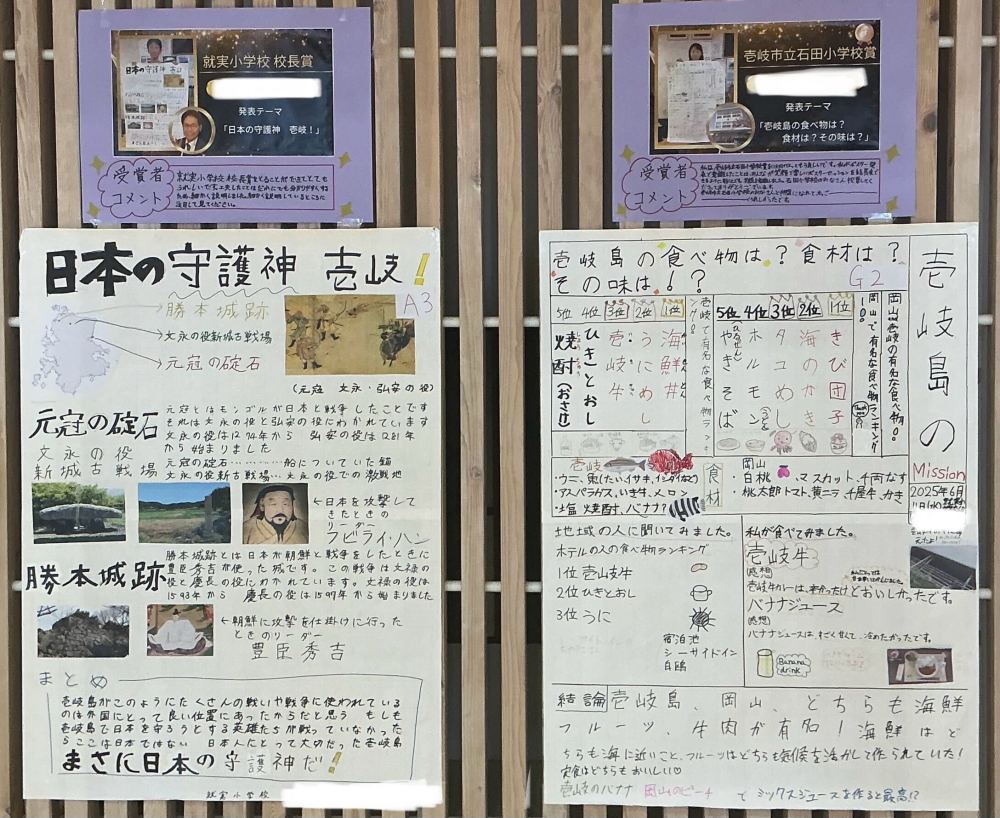 就実小学校 校長賞
発表テーマ
「日本の守護神 壱岐！」
受賞者
コメント
就実小学校 校長賞をとることができてとても
うれしいです。工夫したことはだれにでも分かりやすくする
ため、細かく説明しました。細かく説明しているところに
注目して見てください。
日本の守護神 壱岐！
A3
勝本城跡
文永の役新城古戦場
元寇の碇石
(元寇 文永・弘安の役)
元寇の碇石
文永の役
新城古戦場
元寇とはモンゴルが日本と戦争したことです
それは文永の役と弘安の役にわかれています
文永の役は1274年から 弘安の役は1281年
から始まりました
元寇の碇石…………船についていた錨
文永の役新城古戦場…文永の役での激戦地
←日本を攻撃して
きたときの
リーダー
フビライ・ハン
勝本城跡
勝本城跡とは日本が朝鮮と戦争をしたときに
豊臣秀吉が使った城です。この戦争は文禄の
役と慶長の役にわかれています。文禄の役は
1593年から 慶長の役は1597年から始まりました
←朝鮮に攻撃を仕掛けに行った
ときのリーダー
豊臣秀吉
まとめ
壱岐島がこのようにたくさんの戦いや戦争に使われている
のは外国にとって良い位置にあったからだと思う もしも
壱岐島で日本を守ろうとする英雄たちが戦っていなかった
らここは日本ではない 日本人にとって大切だった壱岐島
まさに日本の守護神だ！
就実小学校
壱岐市立石田小学校賞
発表テーマ
「壱岐島の食べ物は？
食材は？その味は？」
受賞者
コメント
壱岐島の食べ物は？食材は？
その味は！？
G2
壱岐島の
Mission
2025年6月
11日(水)
岡山と壱岐の有名な食べ物！
岡山で有名な食べ物ランキング
1位 きび団子
2位 海のかき
3位 タコめし
4位 ホルモン
5位 ひるぜんやきそば
壱岐で有名な食べ物ランキング
1位 海鮮丼
2位 うにめし
3位 壱岐牛
4位 ひきとおし
5位 焼酎(おさけ)
壱岐
・アスパラガス、いき牛、メロン
・塩 焼酎、バナナ
食材
岡山
・白桃、マスカット、千両なす
・桃太郎トマト、黄ニラ 千屋牛、かき
地域の人に聞いてみました。
ホテルの人の食べ物ランキング
1位 壱岐牛
2位 ひきとおし
3位 うに
宿泊地
シーサイドイン
白鴎
私が食べてみました。
壱岐牛
感想
壱岐牛カレーは、辛かったけどおいしかったです。
バナナジュース
感想
バナナジュースは、すごく甘くて、冷めたかったです。
Banana
drink
結論 壱岐島、岡山、どちらも海鮮
フルーツ、牛肉が有名！海鮮はど
ちらも海に近いこと、フルーツはどちらも気候を活かして作られていた！
定食はどちらもおいしい♡
壱岐のバナナ 岡山のピーチ でミックスジュースを作ると最高!?